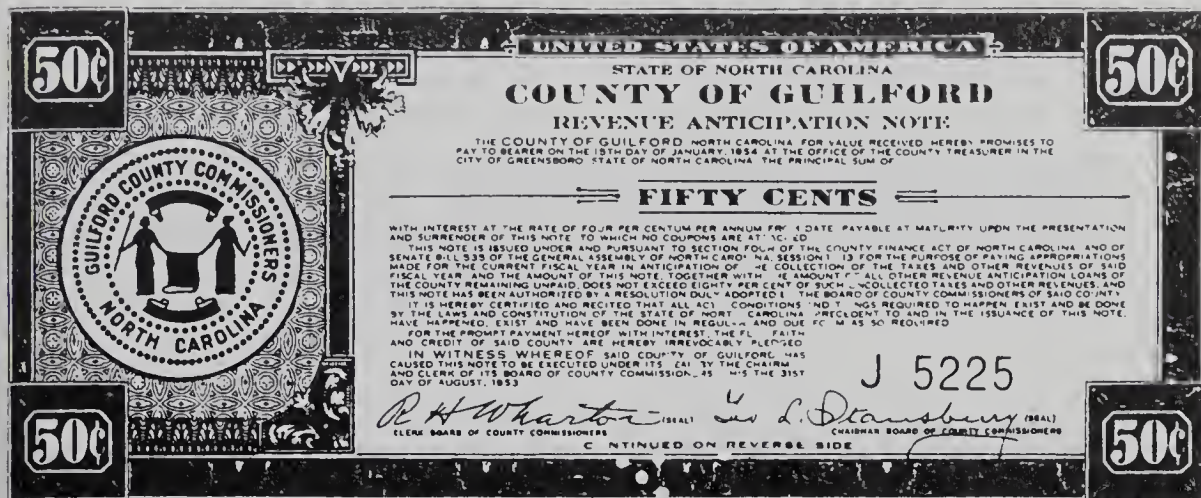 50¢
50¢
UNITED STATES OF AMERICA
STATE OF NORTH CAROLINA
COUNTY OF GUILFORD
REVENUE ANTICIPATION NOTE
THE COUNTY OF GUILFORD NORTH CAROLINA FOR VALUE RECEIVED HEREBY PROMISES TO
PAY TO BEARER ON THE 15TH DAY OF JANUARY, 1934 AT THE OFFICE OF THE COUNTY TREASURER IN THE
CITY OF GREENSBORO STATE OF NORTH CAROLINA THE PRINCIPAL SUM OF
FIFTY CENTS
GUILFORD COUNTY COMMISSIONERS
NORTH CAROLINA
WITH INTEREST AT THE RATE OF FOUR PER CENTUM PER ANNUM DATE PAYABLE AT MATURITY UPON THE PRESENTATION
AND SURRENDER OF THIS NOTE TO WHICH NO COUPONS ARE
THIS NOTE IS ISSUED UNDER AND PURSUANT TO SECTION OF THE COUNTY FINANCE ACT OF NORTH CAROLINA AND OF
SENATE BILL 535 OF THE GENERAL ASSEMBLY OF NORTH SESSION FOR THE PURPOSE OF PAYING APPROPRIATIONS
MADE FOR THE CURRENT FISCAL YEAR IN ANTICIPATION OF THE COLLECTION OF THE TAXES AND OTHER REVENUES OF SAID
FISCAL YEAR AND THE AMOUNT OF THIS NOTE, TOGETHER WITH AMOUNT ALL OTHER REVENUE ANTICIPATION LOANS OF
THE COUNTY REMAINING UNPAID, DOES NOT EXCEED EIGHTY PER CENT OF SUCH UNCOLLECTED TAXES AND OTHER REVENUES, AND
THIS NOTE HAS BEEN AUTHORIZED BY A RESOLUTION DULY ADOPTED THE BOARD OF COUNTY COMMISSIONERS OF SAID COUNTY
IT IS HEREBY CERTIFIED AND RECITED THAT ALL CONDITIONS REQUIRED TO HAPPEN EXIST AND BE DONE
BY THE LAWS AND CONSTITUTION OF THE STATE OF CAROLINA PRECEDENT TO AND IN THE ISSUANCE OF THIS NOTE,
HAVE HAPPENED, EXIST AND HAVE BEEN DONE IN REGULAR AND AS SO REQUIRED
FOR THE PROMPT PAYMENT HEREOF WITH INTEREST, THE FAITH
AND CREDIT OF SAID COUNTY ARE HEREBY IRREVOCABLY PLEDGED
IN WITNESS WHEREOF SAID COUNTY OF GUILFORD HAS
CAUSED THIS NOTE TO BE EXECUTED UNDER ITS BY THE
AND CLERK OF ITS BOARD OF COUNTY THIS THE 31ST
DAY OF AUGUST, 1933
J 5225
R H Wharton (SEAL) Geo L. Stansbury (SEAL)
CLERK BOARD OF COUNTY COMMISSIONERS CHAIRMAN BOARD OF COUNTY COMMISSIONERS
CONTINUED ON REVERSE SIDE
50¢
50¢